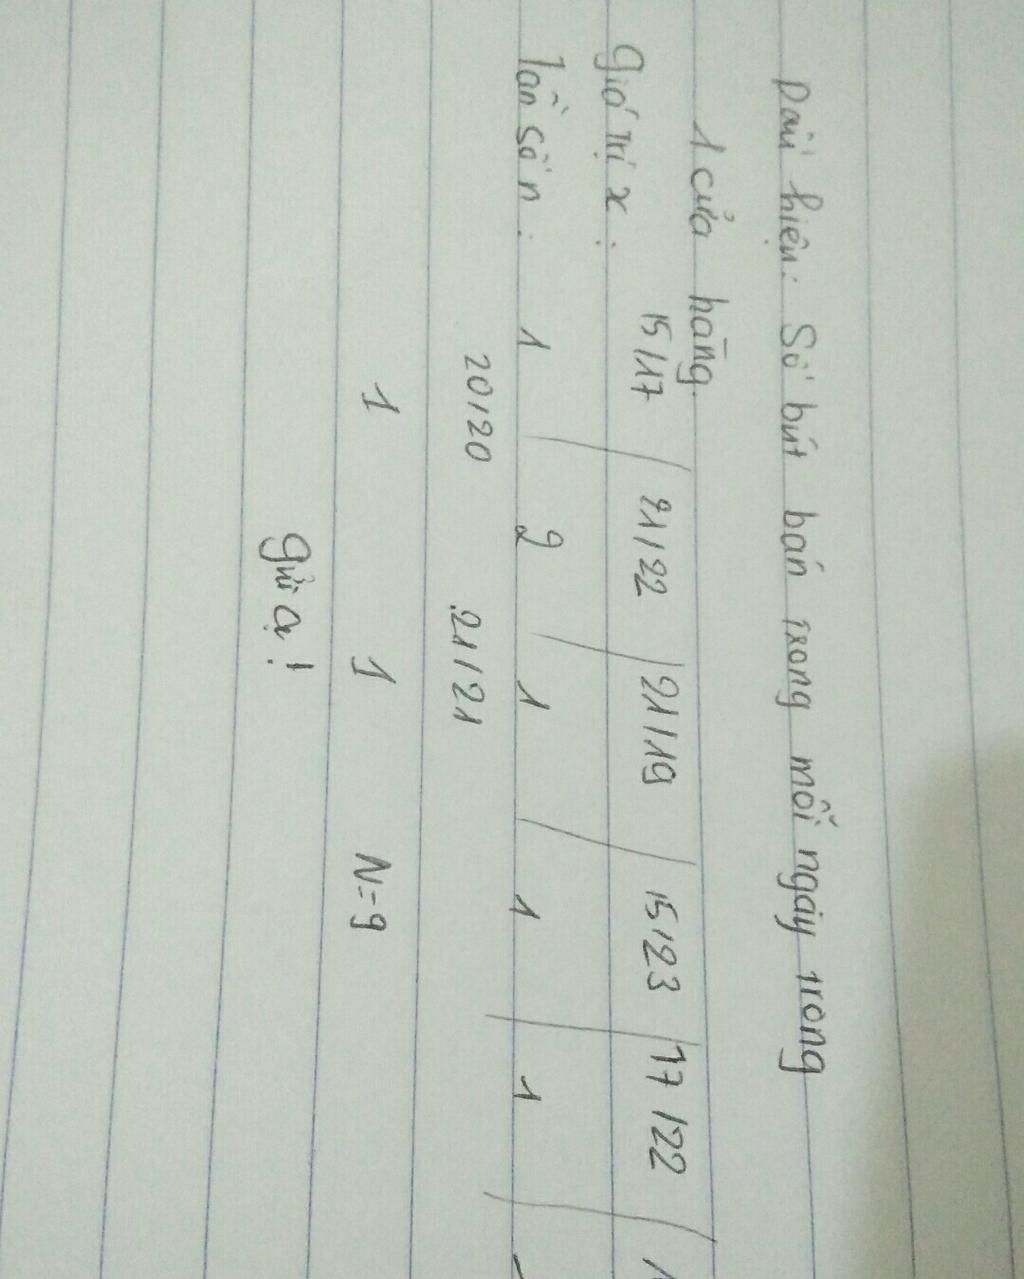 Dấu hiệu: Số bút bán trong mỗi ngày trong
1 cửa hàng.
Giá trị x: 15/17 / 21/22 / 21/19 / 15/23 / 17/22 / 1
Tần số n: 1 2 1 1 1
20/20 21/21
1 1 N=9
Gửi ạ!